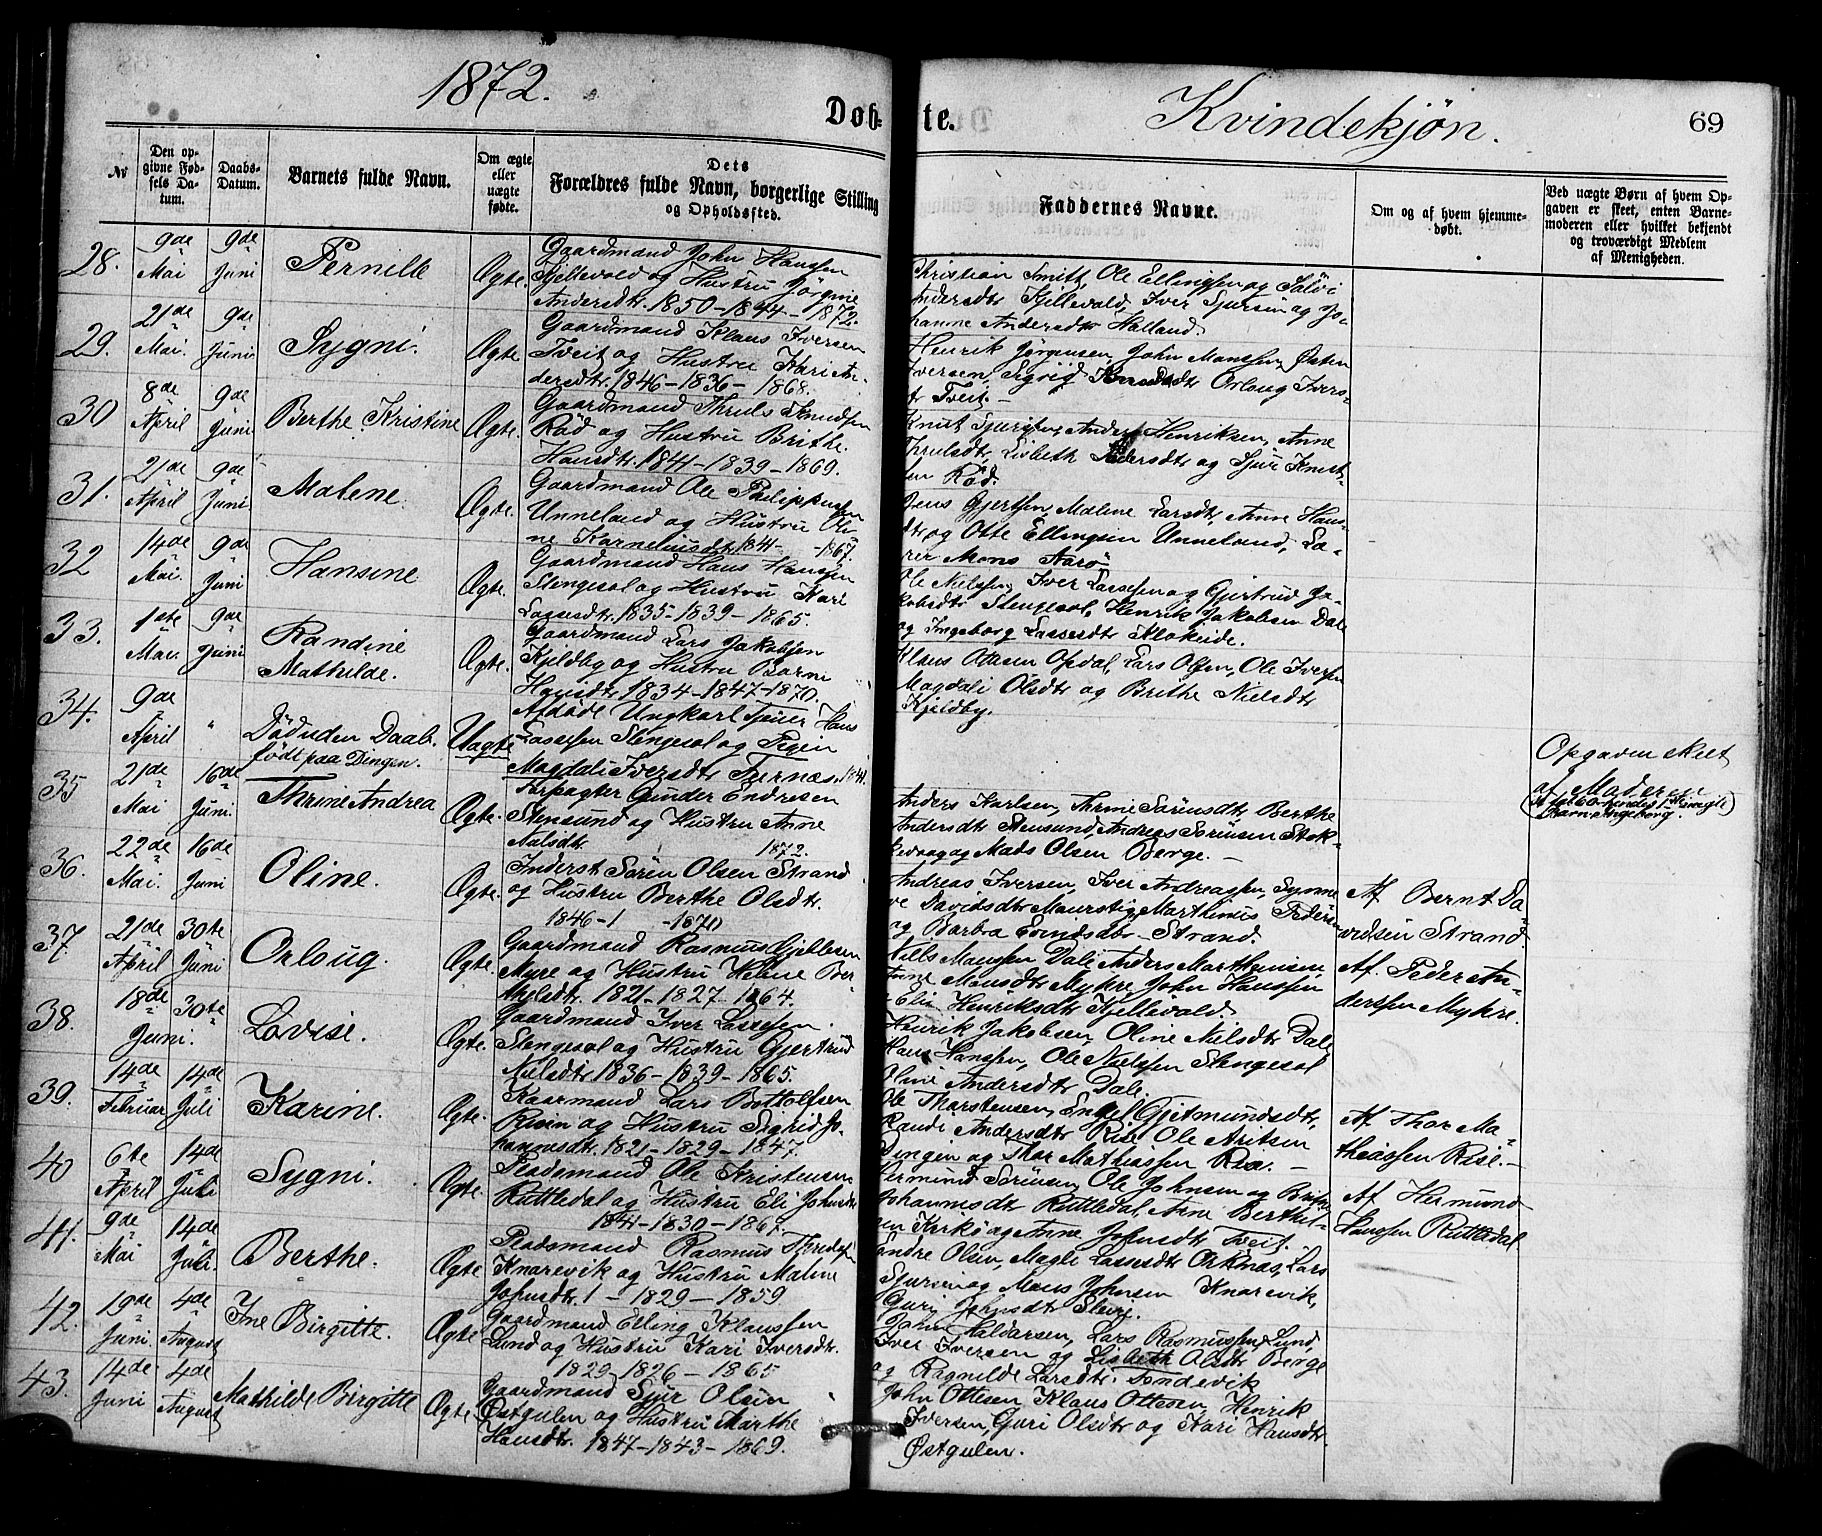 1872.
Døb-
te.
Kvindekjøn.
69
No
Den op-
givne Fød-
sels Da-
tum.
Daabs-
Datum.
Barnets fulde Navn.
Om ægte
eller
uægte
fødte.
Dets
Forældres fulde Navn, borgerlige Stilling
og Opholdssted.
Faddernes Navne.
Om og af hvem hjemme-
døbt.
Ved uægte Børn af hvem Op-
gaven er skeet, enten Barne-
moderen eller hvilket bekjendt
og troværdigt Medlem
af Menigheden.
28.
9de
Mai
9de
Juni
Pernille
Ægte.
Gaardmand John Hanssen
Kjellevold og Hustru Jørgine
Andersdtr. 1850-1844-1872.
Christian Smitt, Ole Ellingsen og Sølvi
Andersdtr Kjellevold, Iver Sjursen og Jo-
hanne Andersdtr Halland.
29.
21de
Mai.
9de
Juni
Sygni.
Ægte
Gaardmand Klaus Iversen
Tveit og Hustru Kari An-
dersdtr. 1846-1836-1868.
Henrik Jørgensen, John Monssen, Østen
Iversen, Sigrid Orloug Ivers-
dtr Tveit.-
30
8de
April
9de
Juni
Berthe Kristine
Ægte.
Gaardmand Thruls Knudsen
Rød og Hustru Brithe
Hansdtr. 1841-1839-1869.
Knut Sjursen, Anders Henriksen, Anne
Thrulsdtr, Lisbeth Pedersdtr og Sjur Knut-
sen Rød.
31.
21de
April
9de
Juni
Malene.
Ægte.
Gaardmand Ole Philippussen
Unneland og Hustru Oli-
ne Korneliusdtr 1841- -1867.
Jens Gjertsen, Malene Larsdtr, Anne Hans-
dtr og Otte Ellingsen Unneland, Læ-
rer Mons Aarø
32
14de
Mai.
9de
Juni
Hansine
Ægte.
Gaardmand Hans Hanssen
Stengesol og Hustru Kari
Lassesdtr. 1835-1839-1865.
Ole Nielssen, Iver Lassesen og Gjertrud Ja-
kobsdtr Stengesol, Henrik Jakobsen Dale
og Ingeborg Lassesdtr Klokeide.
33.
1ste
Mai
9de
Juni
Randine
Mathilde.
Ægte.
Gaardmand Lars Jakobsen
Kjeldby og Hustru Barni
Hansdtr 1834-1847-1870.
Klaus Ottesen Opdal, Lars Olsen, Ole Iversen
Magdali Olsdtr og Brithe Nielsdtr
Kjeldby.
34.
9de
April
"
Død uden Daab.
født paa Dingen.
Uægte
Afdøde Ungkarl Tjener Hans
Lassesen Stengesol og Pigen
Magdali Iversdtr Furenæs. 1841.
Opgaven skeet
af Moderen
35
21de
Mai
16de
Juni.
Thrine Andrea
Ægte.
Forpagter Gunder Endresen
Stensund og Hustru Anne
Nilsdtr. 1872.
Anders Karlsen, Thrine Sørensdtr, Berthe
Andersdtr Stensund, Andreas Sørensen Stok-
kevaag og Mads Olsen Berge.-
36.
22de
Mai.
16de
Juni
Oline.
Ægte.
Inderst Søren Olsen Strand
og Hustru Berthe Olsdtr.
1846-1 -1870
Andreas Iversen, Iver Andreassen, Synne-
ve Davidsdtr Maurstig, Marthinus Pedersen
og Barbra Strand.
Af Bernt Da-
vidsen Strand
37.
21de
April
30te
Juni
Orloug.
Ægte.
Gaardmand Rasmus Gjellesen
Myre og Hustru Helene Ber-
thelsdtr. 1821-1827-1864.
Nills Monssen Dale, Anders Marthinsen
Anne Monsdtr Mykre, John Hanssen
Elin Henriksdtr Kjellevold.
Af Peder An-
derssen Mykre.
38.
18de
Juni.
30te
Lovise.
Ægte.
Gaardmand Iver Lassesen
Stengesol og Hustru Gjertrud
Nielsdtr 1836-1839-1865.
Henrik Jakobsen, Oline Nielsdtr Dale
Hans Hanssen, Ole Nielssen Stengesol
Oline Andersdtr Dale.
39.
14de
Februar
14de
Juli
Karine.
Ægte.
Kaarmand Lars Bottolfsen
Risin og Hustru Sigrid Jo-
hannesdtr. 1821-1829-1847.
Ole Thorstensen, Engel Gjetmundsdtr,
Randi Andersdtr Rise, Ole Aritsen
Dingen og Thor Mathiassen Rise.-
Af Thor Ma-
thiassen Rise.-
40
6te
April
14de
Juli
Sygni.
Ægte.
Pladsmand Ole Kristensen
Ruttledal og Hustru Eli Johnsdtr
1841-1830-1867.
Hermund Sørensen, Ole Johnsen og Brithe
Johannesdtr Ruttledal, Arne Berthel-
sen Kirkø og Anne Johnsdtr Tveit.
Af Hermund
Hanssen Ruttledal
41.
9de
Mai
14de
Juli.
Berthe.
Ægte
Pladsmand Rasmus
Knarevik og Hustru Malene
Johnsdtr. 1-1829-1859
Endre Olsen, Magli Lassesdtr Orknæs, Lars
Sjursen og Mons Johnsen Knarevik,
Guri Johnsdtr Sleire.
42.
19de
Juni.
4de
August
Ine Birgitte.
Ægte
Gaardmand Elling Klaussen
Lund og Hustru Kari Iversdtr.
1829-1826-1865
John Haldorsen, Lars Rasmussen Lund,
Iver Iversen og Lisbeth Olsdtr Berge
og Ragnilde Larsdtr. Søndevik
43.
14de
Juni
4de
August
Mathilde Birgitte
Ægte
Gaardmand Sjur Olsen
Østgulen og Hustru Marthe
Hansdtr. 1847-1843-1869.
John Ottesen, Klaus Ottesen, Henrik
Iversen, Guri Olsdtr og Kari Hansdtr
Østgulen.